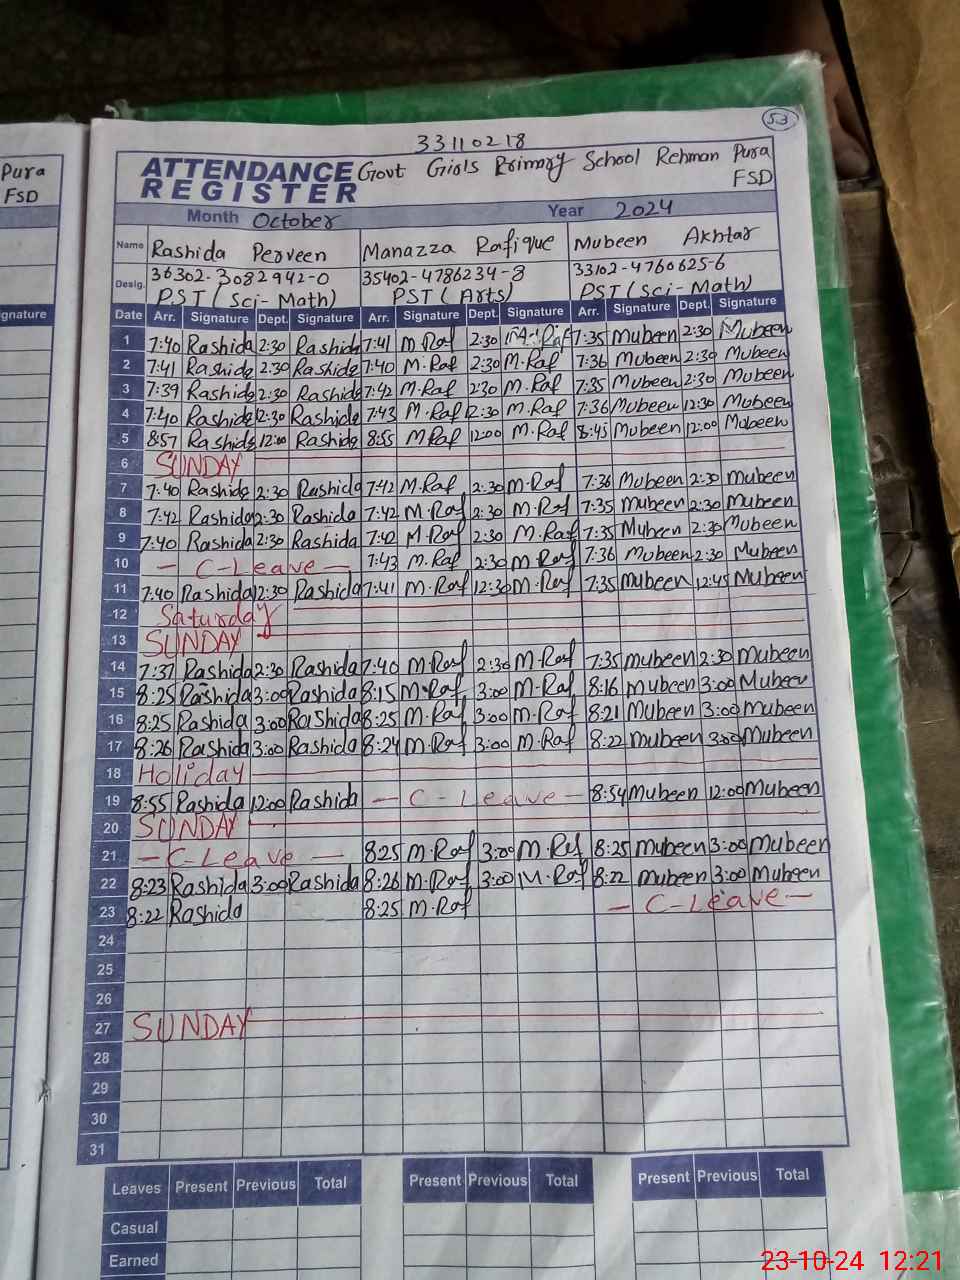 Pura
FSD
gnature
53
33110218
ATTENDANCE REGISTER Govt Girls Primary School Rehman Pura
FSD
Month October Year 2024
Name Rashida Perveen Manazza Rafique Mubeen Akhtar
Desig. 36302-3082942-0 35402-4786234-8 33102-4760625-6
PST (Sci-Math) PST (Arts) PST (Sci-Math)
Date Arr. Signature Dept. Signature Arr. Signature Dept. Signature Arr. Signature Dept. Signature
1 7:40 Rashida 2:30 Rashida 7:41 M.Raf 2:30 7:35 Mubeen 2:30 Mubeen
2 7:41 Rashida 2:30 Rashida 7:40 M.Raf 2:30 M.Raf 7:36 Mubeen 2:30 Mubeen
3 7:39 Rashida 2:30 Rashida 7:42 M.Raf 2:30 M.Raf 7:35 Mubeen 2:30 Mubeen
4 7:40 Rashida 12:30 Rashida 7:43 M.Raf 12:30 M.Raf 7:36 Mubeen 12:30 Mubeen
5 8:57 Rashida 12:00 Rashida 8:55 M.Raf 12:00 M.Raf 8:45 Mubeen 12:00 Mubeen
6 SUNDAY
7 7:40 Rashida 2:30 Rashida 7:42 M.Raf 2:30 M.Raf 7:36 Mubeen 2:30 Mubeen
8 7:42 Rashida 2:30 Rashida 7:42 M.Raf 2:30 M.Raf 7:35 Mubeen 2:30 Mubeen
9 7:40 Rashida 2:30 Rashida 7:42 M.Raf 2:30 M.Raf 7:35 Mubeen 2:30 Mubeen
10 - C-Leave - 7:43 M.Raf 2:30 M.Raf 7:36 Mubeen 2:30 Mubeen
11 7:40 Rashida 12:30 Rashida 7:41 M.Raf 12:30 M.Raf 7:35 Mubeen 12:45 Mubeen
12 Saturday
13 SUNDAY
14 7:37 Rashida 2:30 Rashida 7:40 M.Raf 2:30 M.Raf 7:35 Mubeen 2:30 Mubeen
15 8:25 Rashida 3:00 Rashida 8:15 M.Raf 3:00 M.Raf 8:16 Mubeen 3:00 Mubeen
16 8:25 Rashida 3:00 Rashida 8:25 M.Raf 3:00 M.Raf 8:21 Mubeen 3:00 Mubeen
17 8:26 Rashida 3:00 Rashida 8:24 M.Raf 3:00 M.Raf 8:22 Mubeen 3:00 Mubeen
18 Holiday
19 8:55 Rashida 12:00 Rashida - C-Leave - 8:54 Mubeen 12:00 Mubeen
20 SUNDAY
21 - C-Leave - 8:25 M.Raf 3:00 M.Raf 8:25 Mubeen 3:00 Mubeen
22 8:23 Rashida 3:00 Rashida 8:26 M.Raf 3:00 M.Raf 8:22 Mubeen 3:00 Mubeen
23 8:22 Rashida 8:25 M.Raf - C-Leave -
24
25
26
27 SUNDAY
28
29
30
31
Leaves Present Previous Total Present Previous Total Present Previous Total
Casual
Earned
23-10-24 12:21